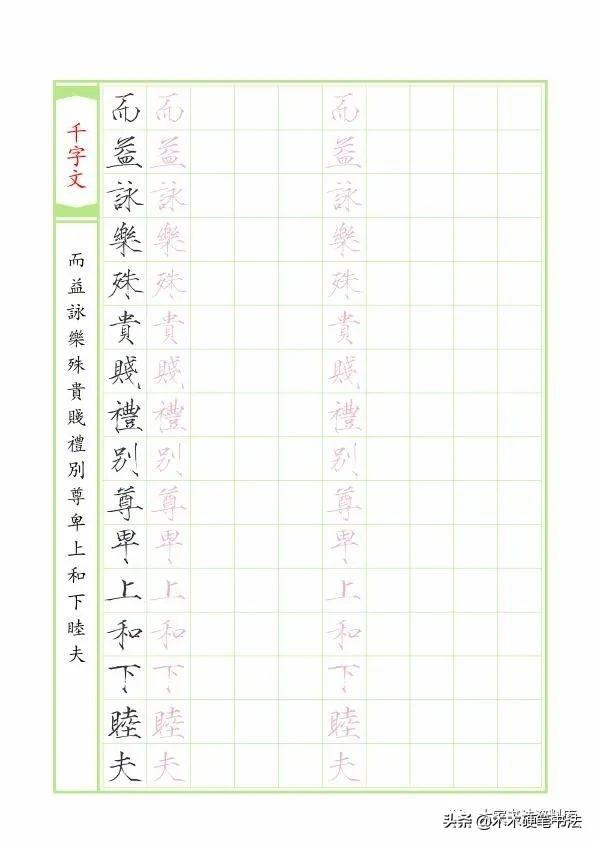 千字文
而益詠樂殊貴賤禮別尊卑上和下睦夫
而益詠樂殊貴賤禮別尊卑上和下睦夫
而益詠樂殊貴賤禮別尊卑上和下睦夫
而益詠樂殊貴賤禮別尊卑上和下睦夫
头条 @木木硬笔书法